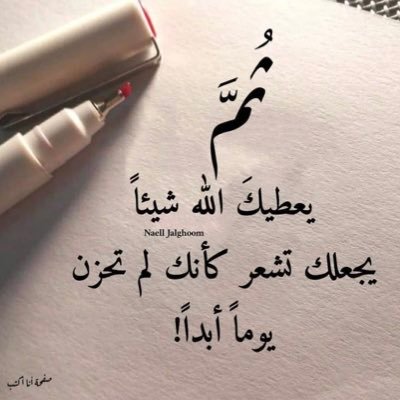 ثُمَّ
يعطيكَ الله شيئاً
Naell Jalghoom
يجعلك تشعر كأنك لم تحزن
يوماً أبداً!
صفحة أنا أكتب